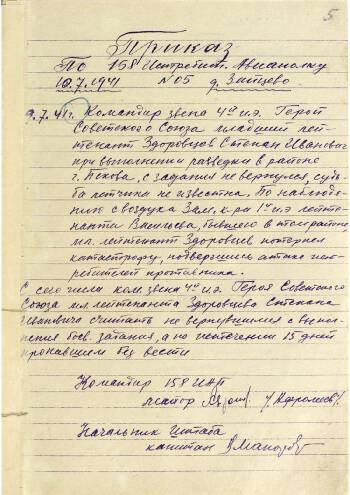 5
Приказ
По 158 Истребит. Авиаполку
10.7.1941 № 05 д. Зайцево
9.7.41г. Командир звена 4ой и.э. Герой
Советского Союза младший лей-
тенант Здоровцев Степан Иванович
при выполнении разведки в районе
г. Пскова, с задания не вернулся, судь-
ба летчика не известна. По наблюде-
нию с воздуха Зам. к-ра 1ой и.э. лейте-
нанта Васильева, бывшего в этом районе,
мл. лейтенант Здоровцев потерпел
катастрофу, подвергшись атаке ист-
ребителей противника.
С сего числа ком. звена 4ой и.э. Героя Советского
Союза мл. лейтенанта Здоровцева Степана
Ивановича считать не вернувшимся с выпол-
нения боев. задания, а по истечении 15 дней
пропавшим без вести
Командир 158 ИАП
майор
Начальник Штаба
капитан